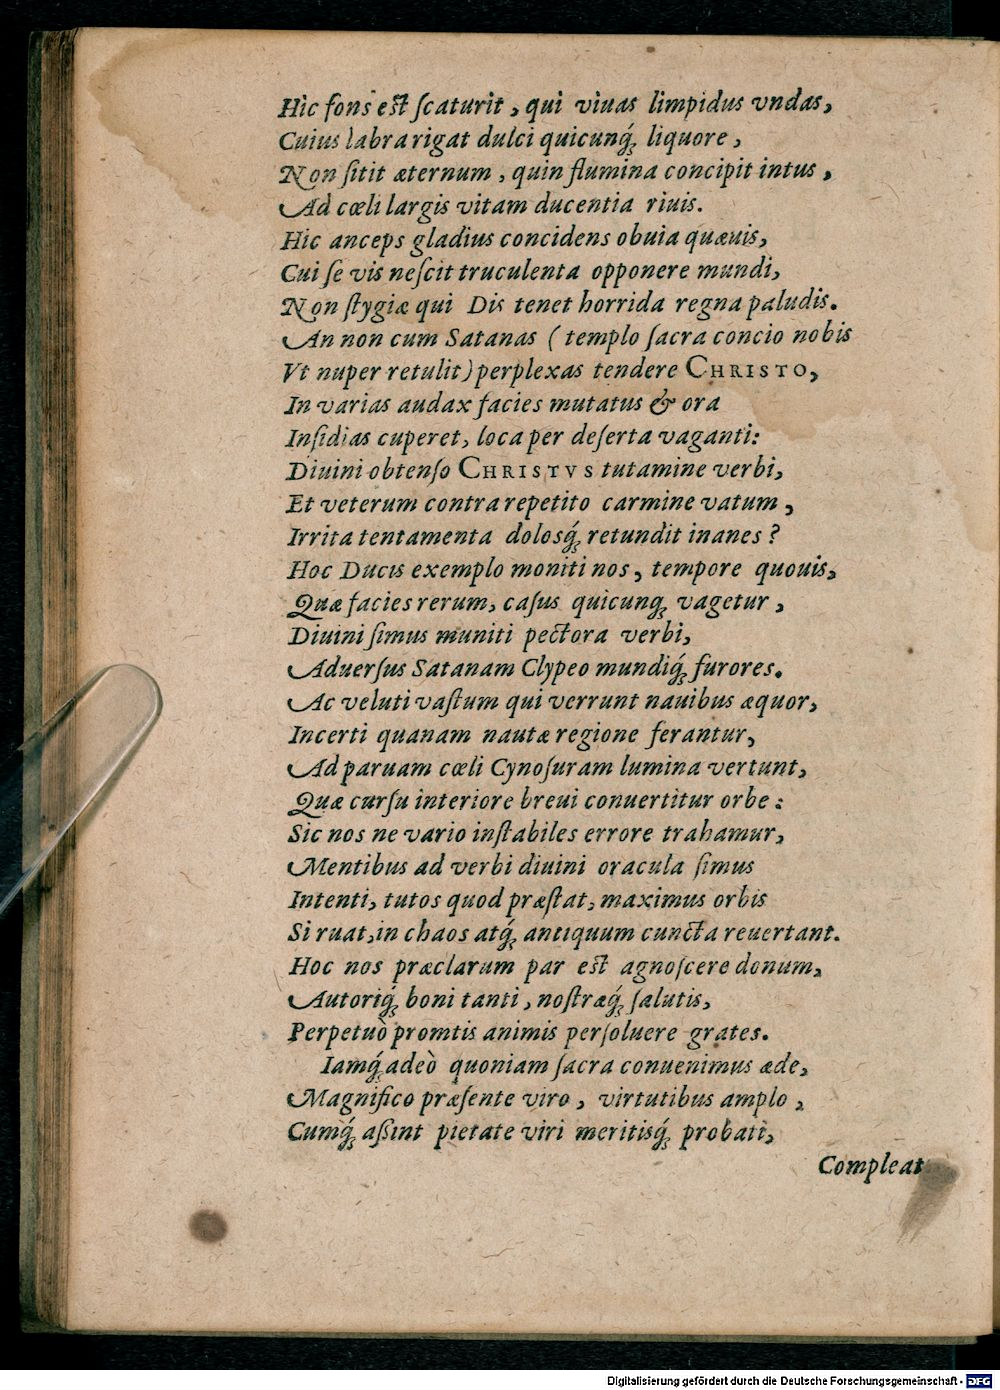 Hic fons est scaturit, qui viuas limpidus vndas,
Cuius labra rigat dulci quicunq́; liquore,
Non sitit æternum, quin flumina concipit intus,
Ad cœli largis vitam ducentia riuis.
Hic anceps gladius concidens obuia quæuis,
Cui se vis nescit truculenta opponere mundi,
Non stygiæ qui Dis tenet horrida regna paludis.
An non cum Satanas ( templo sacra concio nobis
Vt nuper retulit) perplexas tendere CHRISTO,
In varias audax facies mutatus & ora
Insidias cuperet, loca per deserta vaganti:
Diuini obtenso CHRISTVS tutamine verbi,
Et veterum contra repetito carmine vatum,
Irrita tentamenta dolosq́; retundit inanes?
Hoc Ducis exemplo moniti nos, tempore quouis,
Quæ facies rerum, casus quicunq; vagetur,
Diuini simus muniti pectora verbi,
Aduersus Satanam Clypeo mundiq́; furores.
Ac veluti vastum qui verrunt nauibus æquor,
Incerti quanam nautæ regione ferantur,
Ad paruam cœli Cynosuram lumina vertunt,
Quæ cursu interiore breui conuertitur orbe:
Sic nos ne vario instabiles errore trahamur,
Mentibus ad verbi diuini oracula simus
Intenti, tutos quod præstat, maximus orbis
Si ruat, in chaos atq́; antiquum cuncta reuertant.
Hoc nos præclarum par est agnoscere donum,
Autoriq́; boni tanti, nostræq́; salutis,
Perpetuò promtis animis persoluere grates.
Iamq́; adeò quoniam sacra conuenimus æde,
Magnifico præsente viro, virtutibus amplo,
Cumq́; assint pietate viri meritisq́; probati,
Compleat
Digitalisierung gefördert durch die Deutsche Forschungsgemeinschaft - DFG